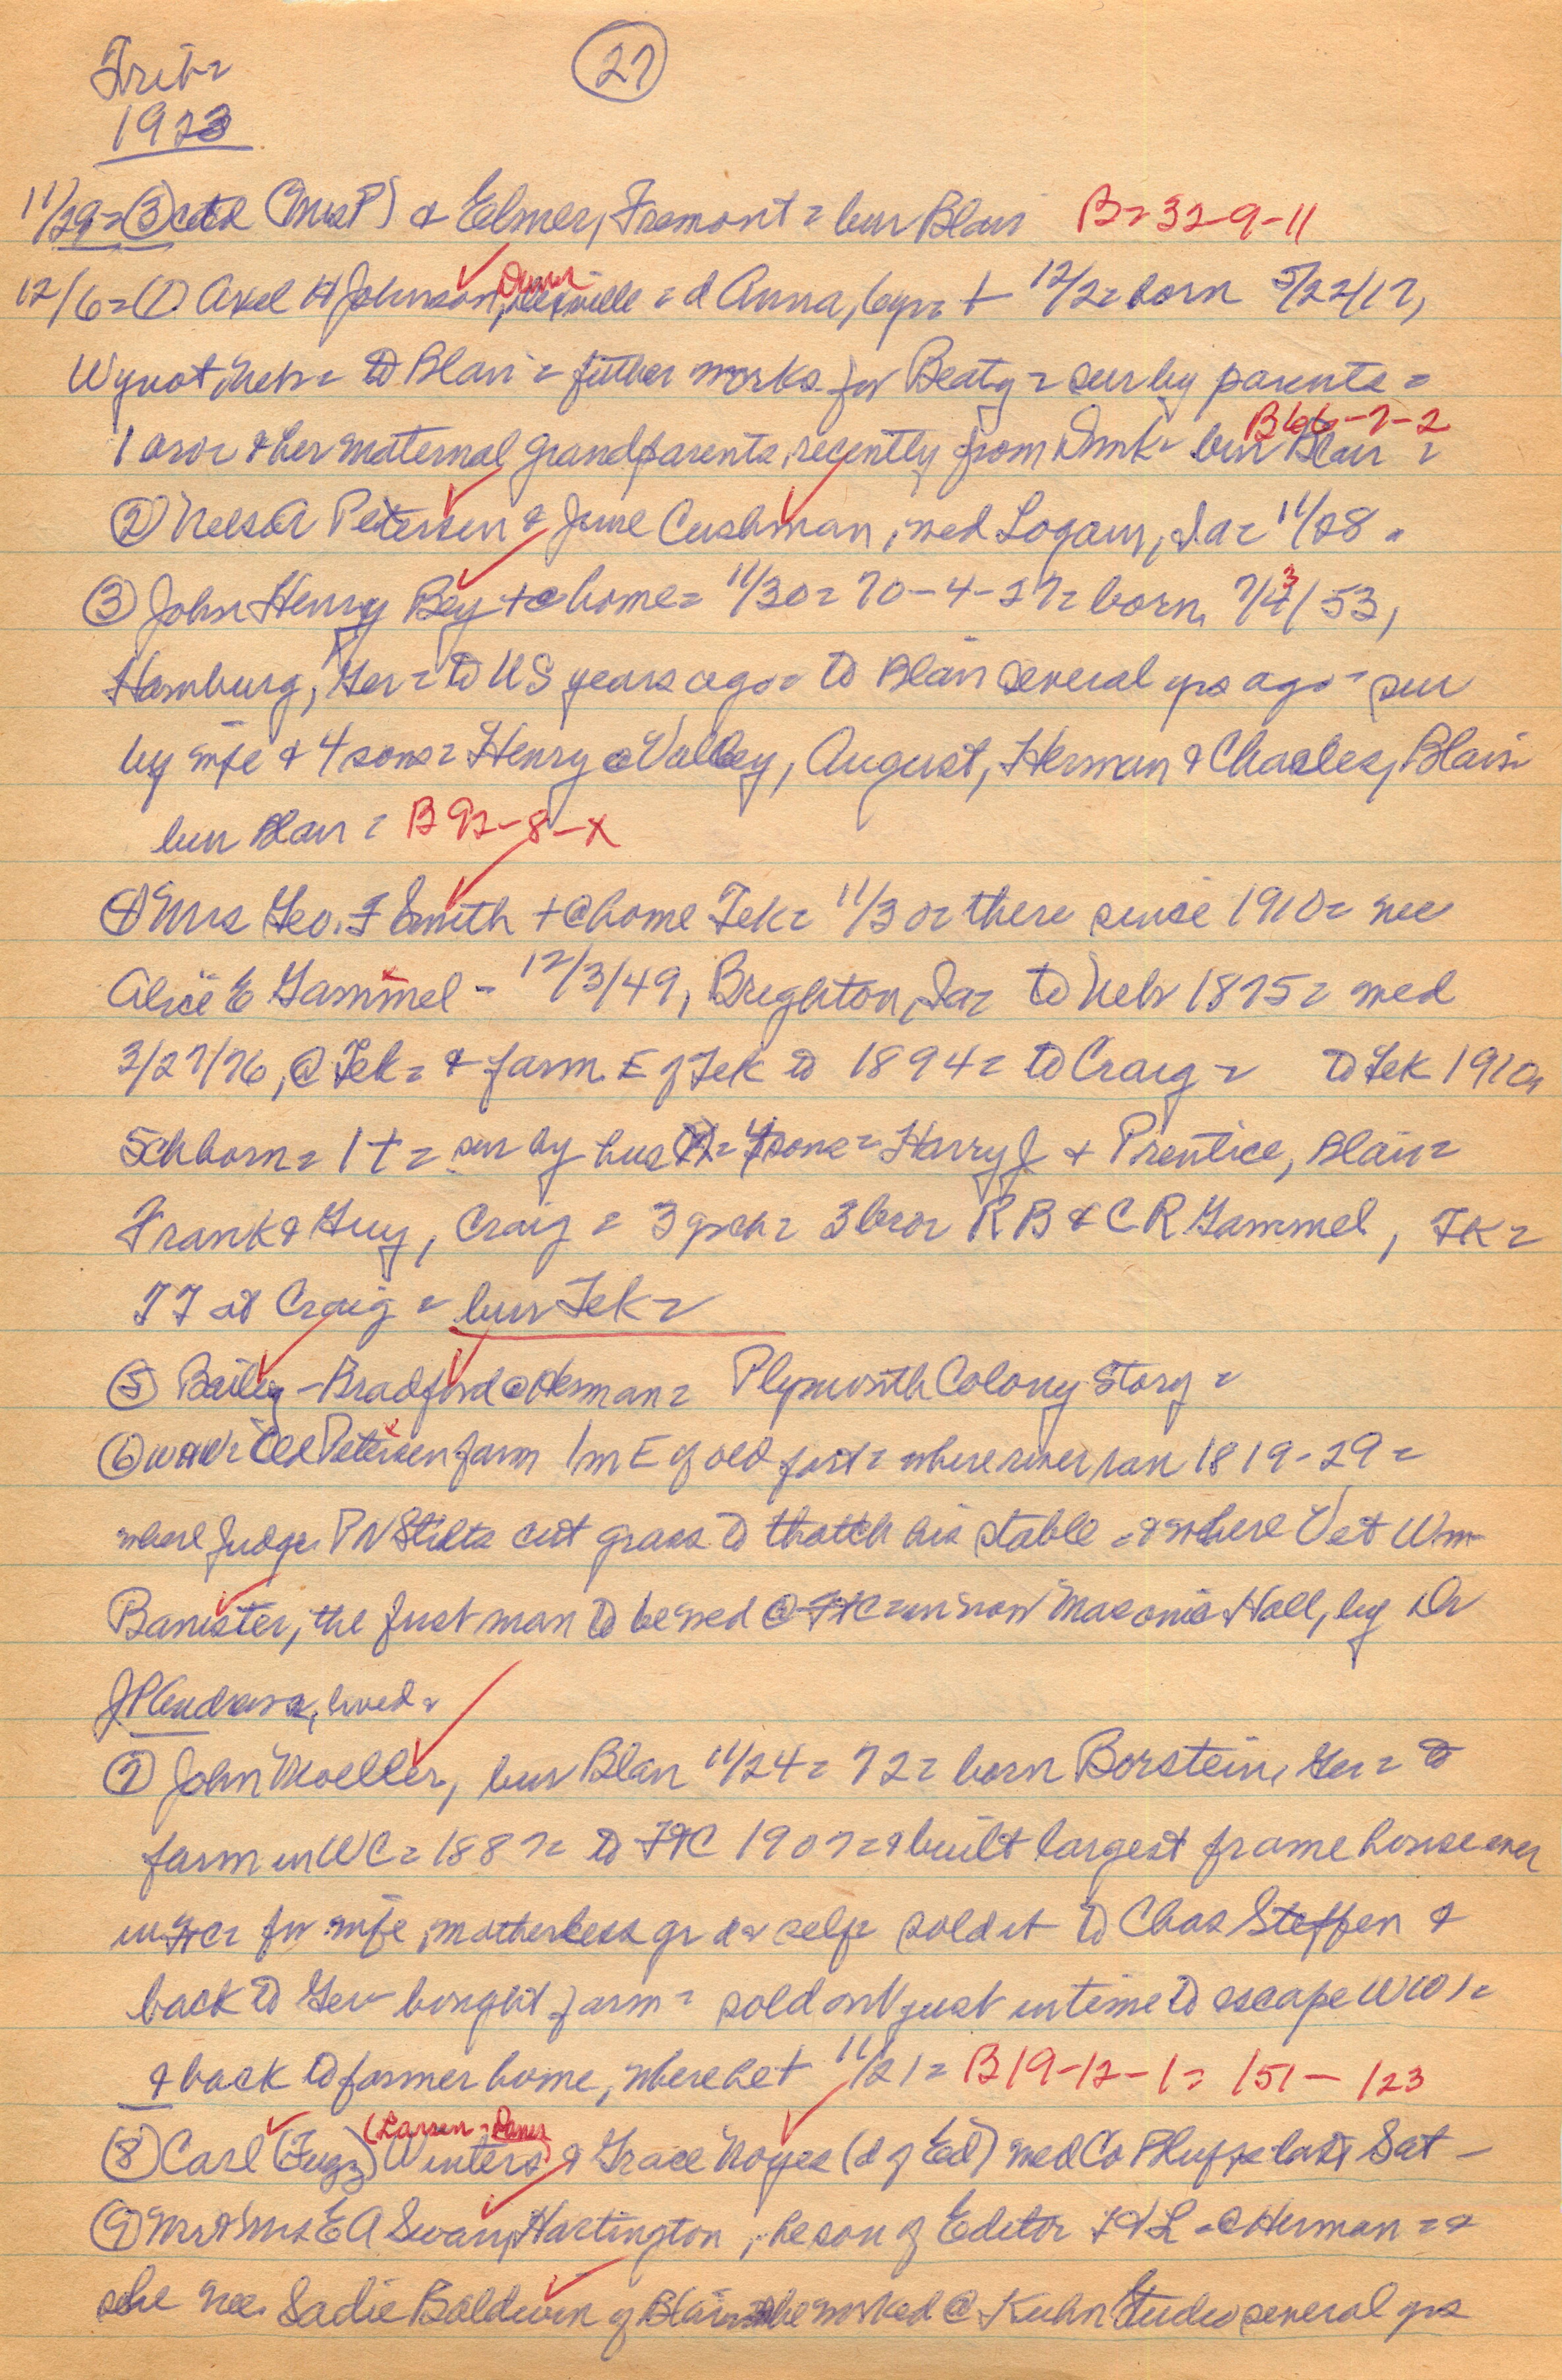 Trib =
27
1923
11/29 = (3) (Mrs P) & Elmer, Fremont = bur Blair B = 32-9-11
12/6 = (1) Axel H Johnson, Dane = d Anna, 6yr = + 12/2 = born 5/22/17,
Wynot, Neb = to Blair = father works for Beaty = sur by parents =
1 bro = & her maternal grandparents, recently from Dmk = bur Blair = B66-7-2
(2) Nels A Petersen & June Cushman, med Logan, Ia = 11/28 =
(3) John Henry Bey + @ home = 11/30 = 70-4-27 = born, 7/3/53,
Hamburg, Ger = to US years ago = to Blair several yrs ago = sur
by wife & 4 sons = Henry @ Valley, August, Herman & Charles, Blair =
bur Blair = B 92-8-X
(4) Mrs Geo. F Smith + @ home Tek = 11/30 = there since 1910 = nee
Alice E Gammel - 12/3/49, Brighton, Ia = to Neb 1875 = med
3/27/76, @ Tek = & farm E of Tek to 1894 = to Craig = to Tek 1910,
5ch born = 1 + = sur by hus = 4 sons = Harry J & Prentice, Blair =
Frank & Guy, Craig = 3 grch = 3 bro = R B & C R Gammel, TK =
TT at Craig = bur Tek =
(5) Bailey - Bradford @ Herman = Plymouth Colony Story =
(6) Petersen farm 1m E of old fort = where river ran 1819-29 =
where Judge P N Stilts cut grass to thatch his stable = & where Vet Wm
Banister, the first man to be med @ FtC = in now Masonic Hall, by Dr
J P Andrews, lived =
(7) John Moeller, bur Blair 11/24 = 72 = born Borstein, Ger = to
farm in WC = 1887 = to FtC 1907 = & built largest frame house ever
in FtC = for wife, motherless gr d & self = sold it to Chas Steffen &
back to Ger - bought farm = sold out just in time to escape WW1 =
& back to former home, where he + 11/21 = B19-12-1 = 151-123
(8) Carl (Fugz) Winters (Larsen = Dane) & Grace Noyes (d of Ed) med Co Bluffs last Sat -
(9) Mr & Mrs E A Swan, Hartington, he son of Editor F L = @ Herman = &
she nee Sadie Baldwin of Blair = she worked @ Kuhn Studio several yrs